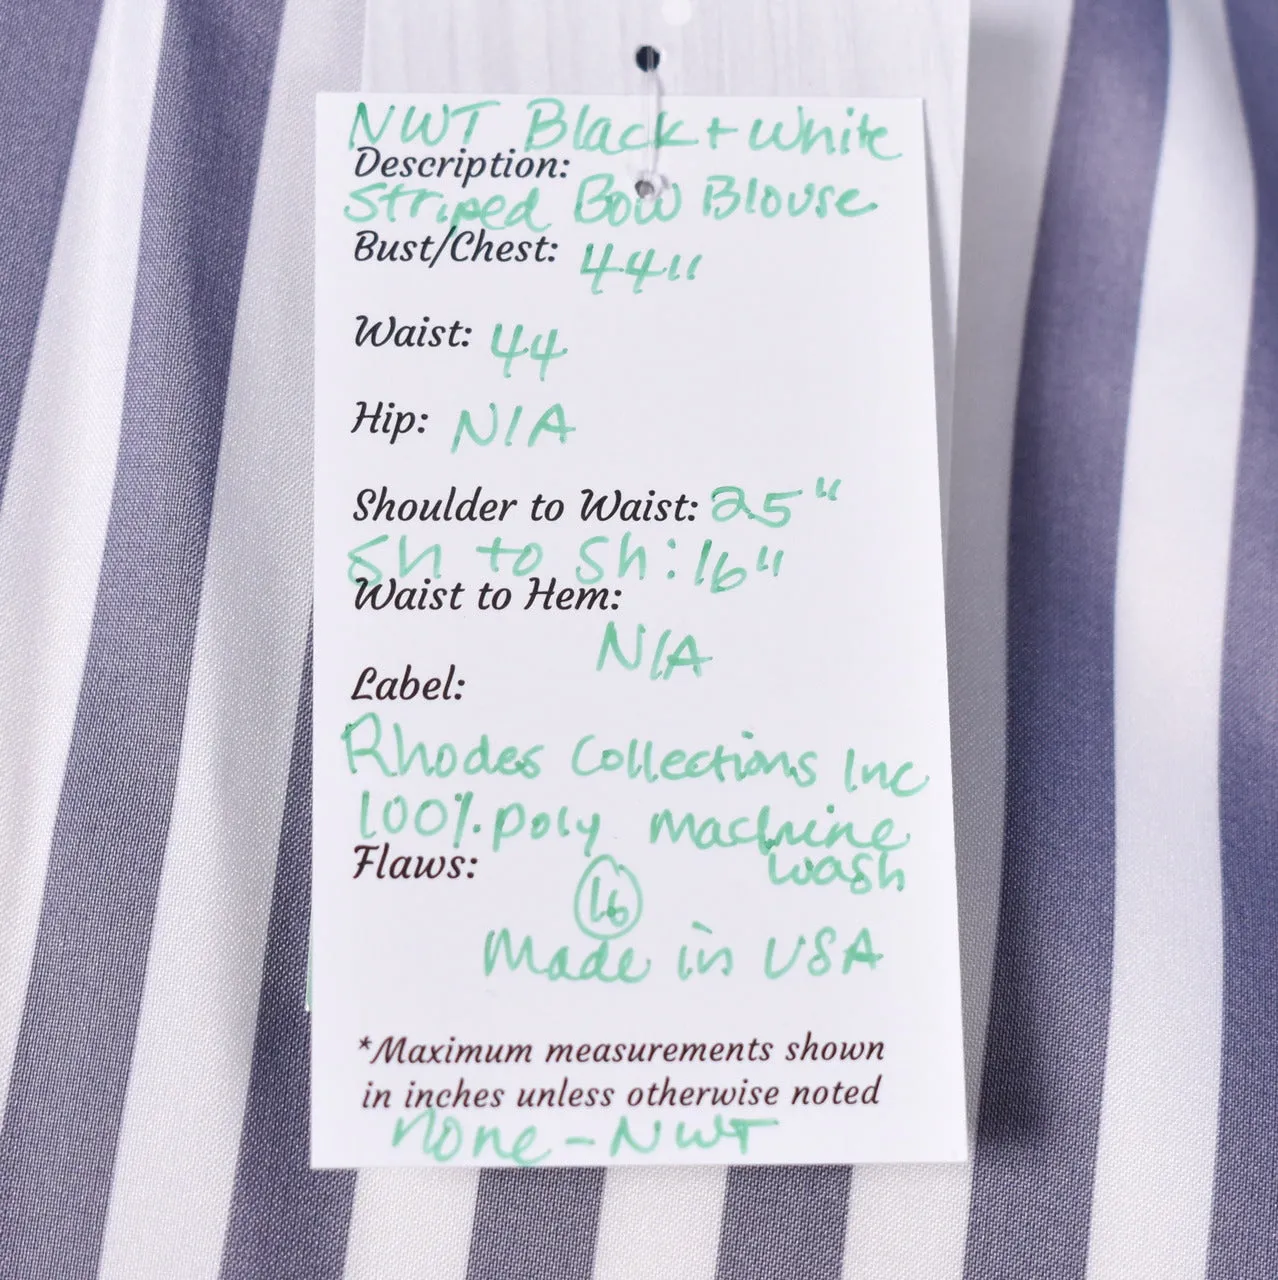 NWT Black + White
Description:
Striped Bow Blouse
Bust/Chest: 44"
Waist: 44
Hip: N/A
Shoulder to Waist: 25"
Sh to Sh: 16"
Waist to Hem:
N/A
Label:
Rhodes Collections Inc
100% poly machine
wash
Flaws:
16
Made in USA
*Maximum measurements shown
in inches unless otherwise noted
none - NWT